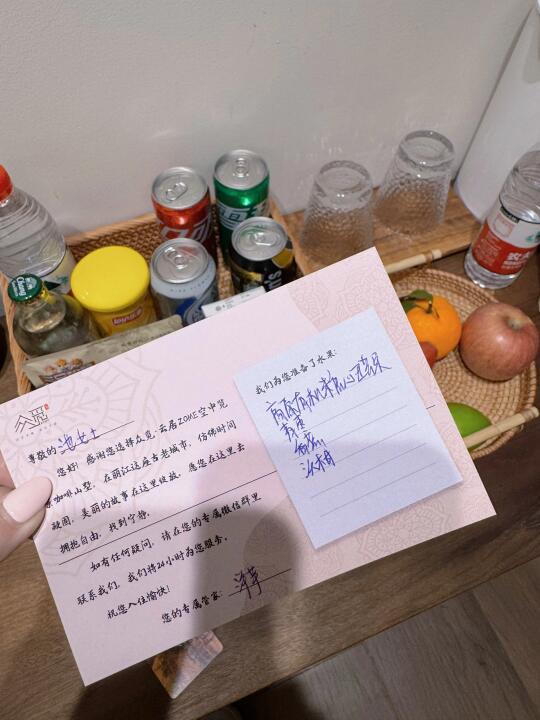 Chang
Lay's
众觅
尊敬的 池女士
您好！感谢您选择众觅·云居ZOME空中览
景咖啡山墅，在丽江这座古老城市，仿佛时间
凝固，美丽的故事在这里绽放，愿您在这里去
拥抱自由，找到宁静。
如有任何疑问，请在您的专属微信群里
联系我们，我们将24小时为您服务。
祝您入住愉快！
您的专属管家：
我们为您准备了水果：
高原有机糖心苹果
农夫